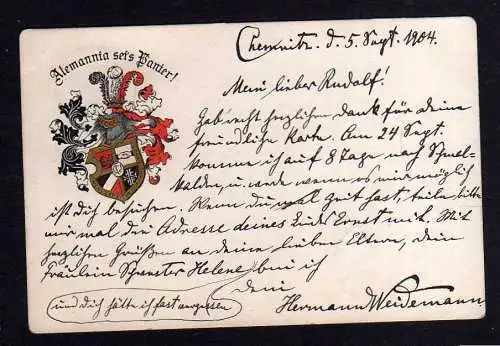 Alemannia sei's Panier!
Chemnitz. d. 5. Sept. 1904.
Mein lieber Rudolf!
Hab' recht herzlichen Dank für deine
freundliche Karte. Am 24 Sept.
komme ich auf 8 Tage nach Schmal-
kalden, u. werde wenn es mir möglich
ist Dich besuchen. Wenn du mal Zeit hast, teile bitte
mir mal die Adresse deines Ernst mit. Mit
herzlichen Grüßen an deine lieben Eltern, dein
Fräulein Schwester Helene bin ich
und dich hätte ich fast vergessen
dein
Hermann Weidemann